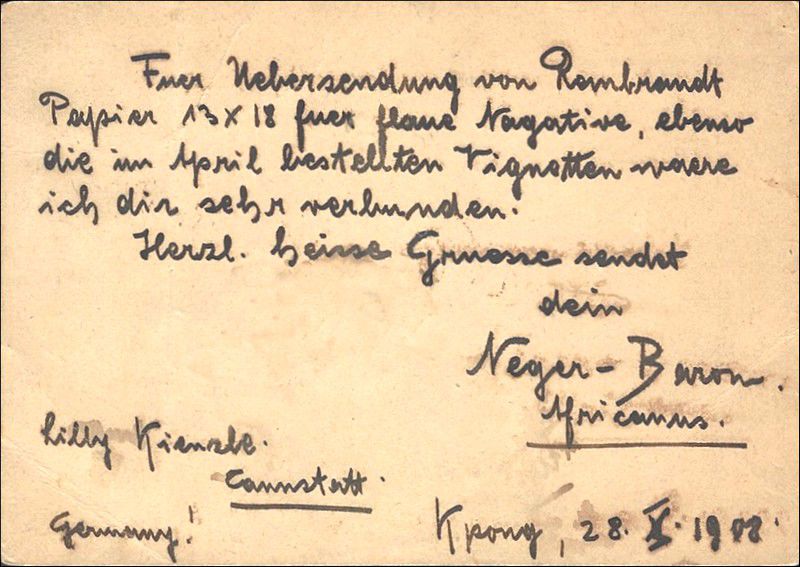 Fuer Uebersendung von Rembrandt
Papier 13 x 18 fuer flaue Nagative, ebenso
die im April bestellten Vignetten waere
ich dir sehr verbunden.
Herzl. heisse Gruesse sendet
dein
Neger-Baron.
Africanus.
Lilly Kienzle.
Cannstatt.
Germany!
Kpong, 28. X. 1908.